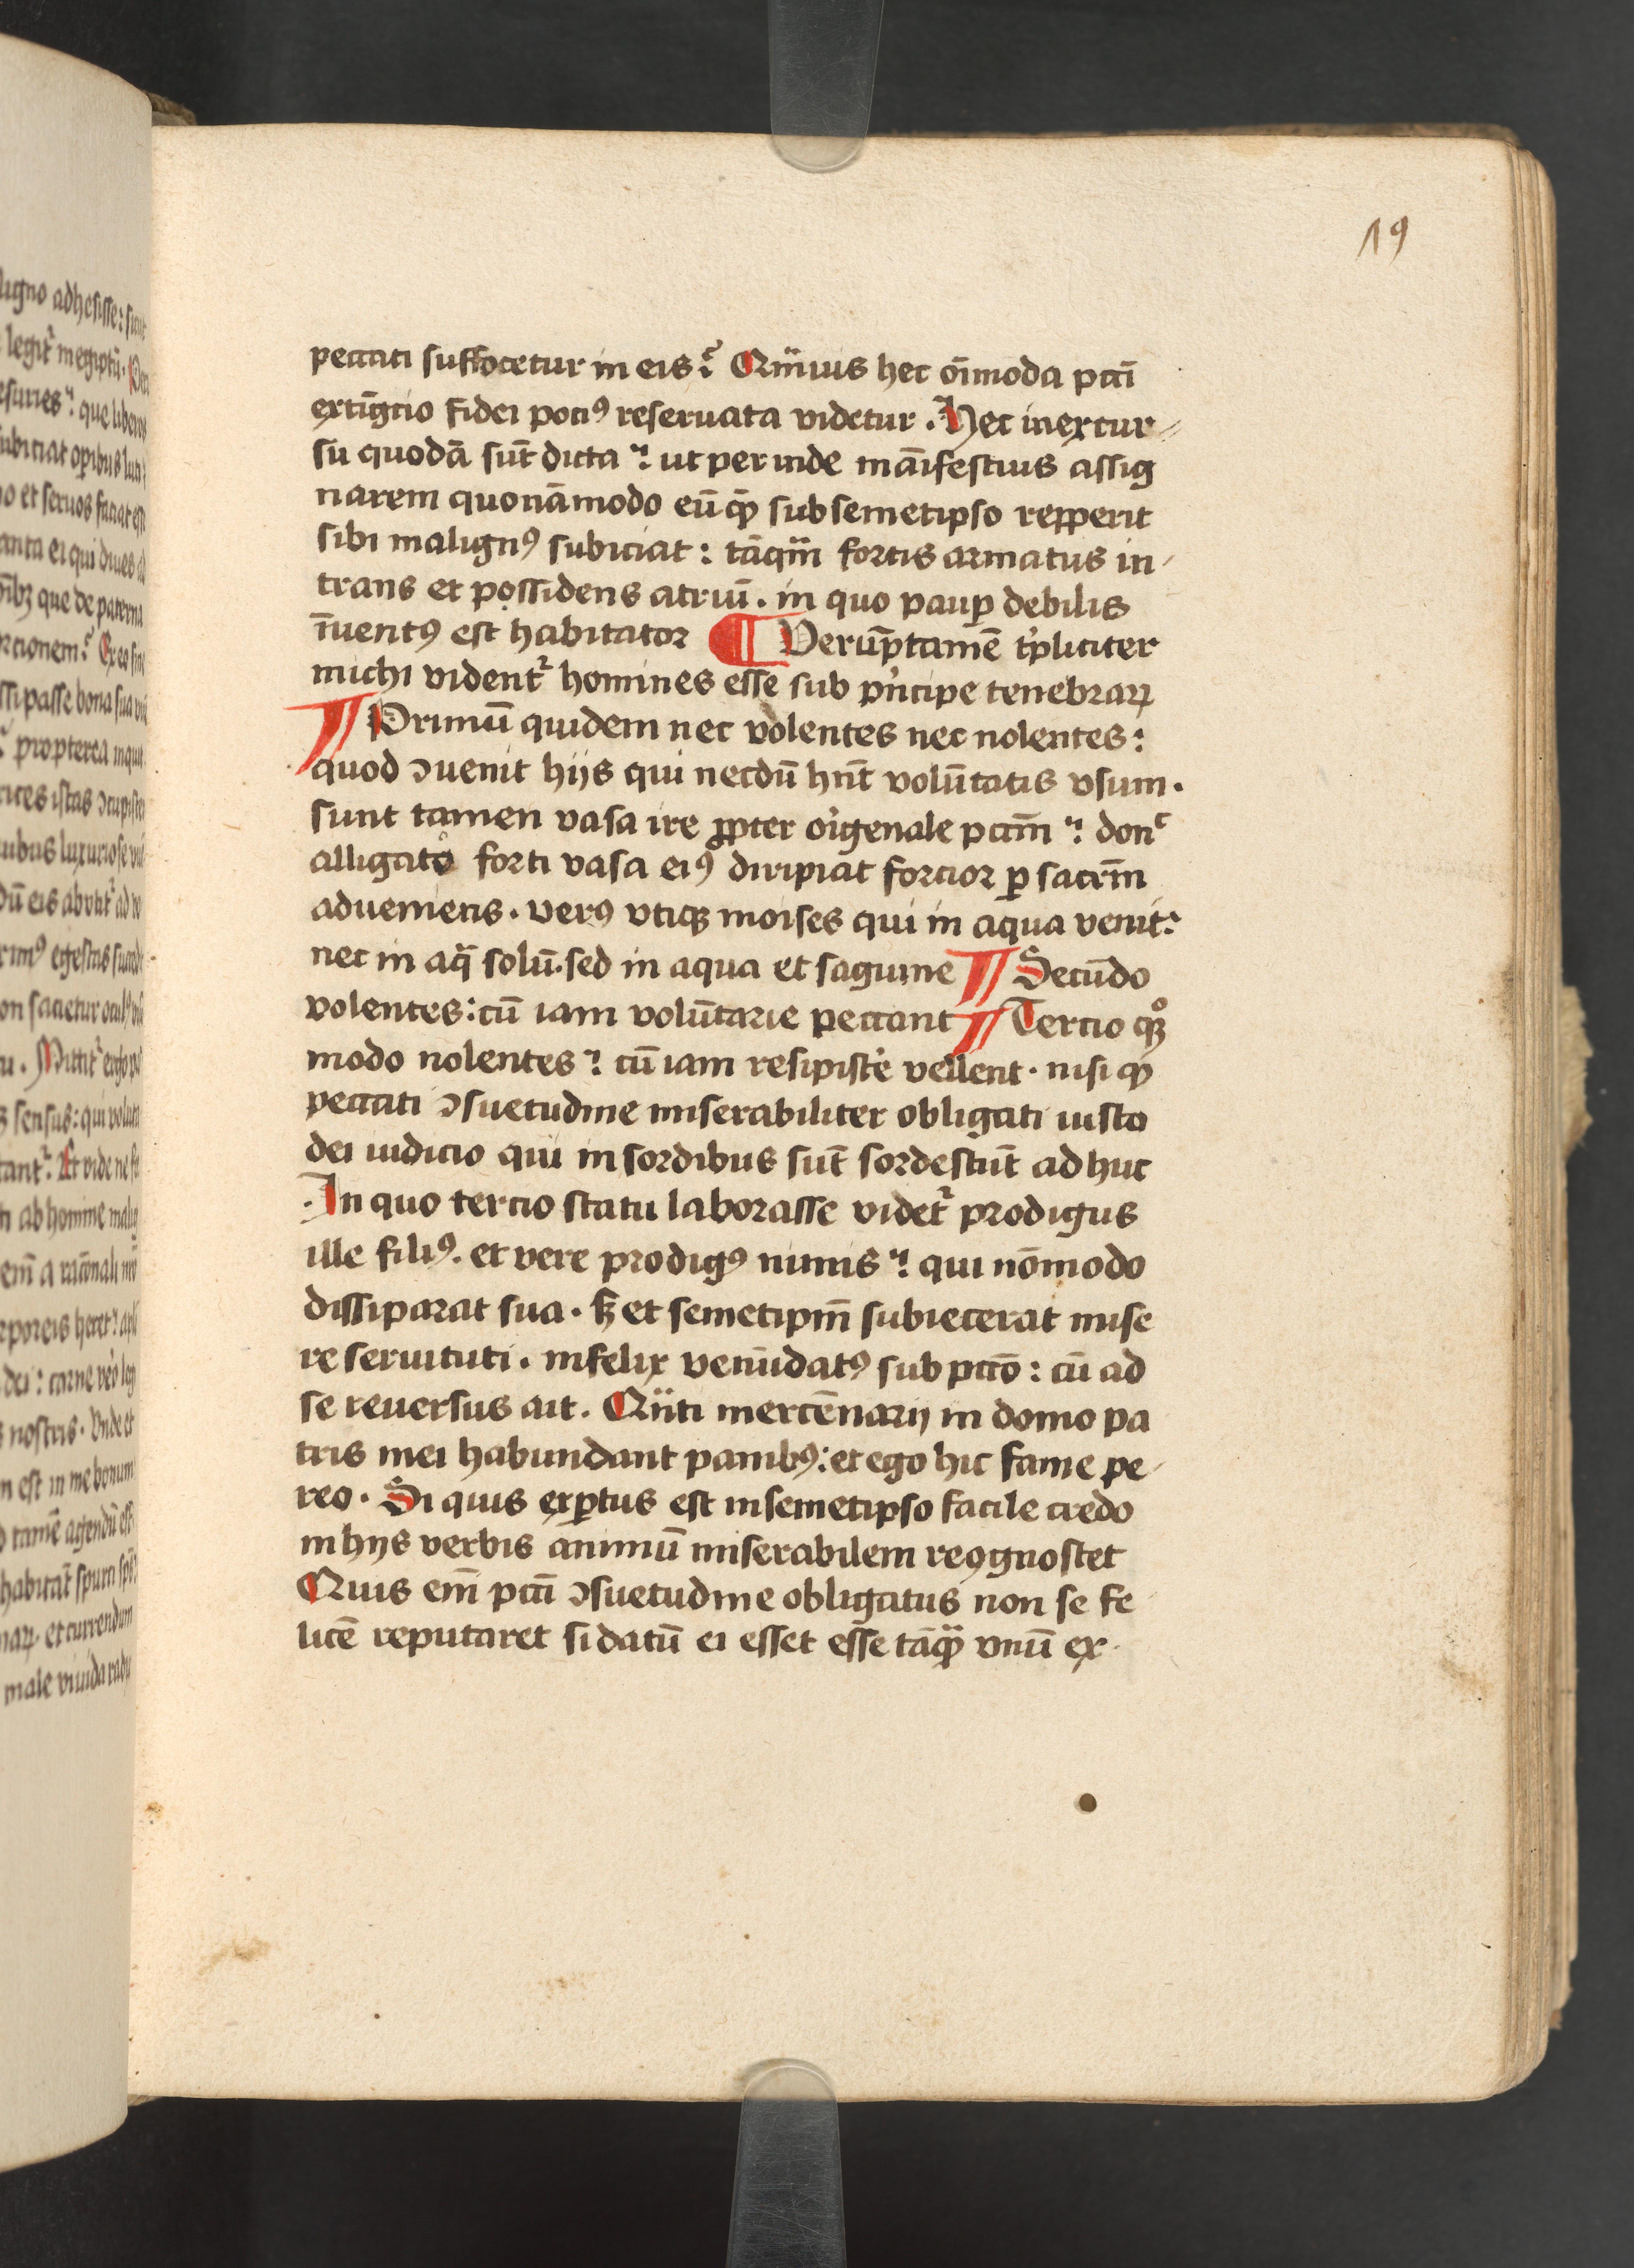 19
peccati suffocetur in eis? Quāuis hec oīmoda pccī
extīgcio fidei pociꝰ reseruata videtur. Hec in excur⸗
su quodā sūt dicta: ut per inde manīfestius assig
narem quonāmodo eūqꝫ sub semetipso repperit
sibi malignꝰ subiciat: tāqᷓm fortis armatus in-
trans et possidens atriū. in quo paup̱ debilis
īuentꝰ est habitator ¶ Verūptamē tⁱpliciter
michi videntᷣ homines esse sub pⁱncipe tenebraꝝ
¶ Primū quidem nec volentes nec nolentes:
quod ↄuenit hijs qui necdū hn̄t volūtatis vsum.
sunt tamen vasa ire ꝓpter orⁱgenale pccm̄: donᶜ
alligato forti vasa eiꝰ diripiat forcior ꝑ sacrm̄
adueniens. verꝰ vtiqꝫ moises qui in aqua venit:
nec in aqᷓ solū. sed in aqua et sagwine ¶ Secūdo
volentes: cū iam volūtarie peccant ¶ Tercio qͦꝫ
modo nolentes: cū iam resipiscē vellent. nisi qꝫ
peccati ↄsuetudine miserabiliter obligati iusto
dei iudicio qui in sordibus sūt sordescūt ad huc
.In quo tercio statu laborasse videtᷣ prodigus
ille filiꝰ. et vere prodigꝰ nimis: qui nōmodo
dissiparat sua. sꝫ et semetipm̄ subiecerat mise
re seruituti. infelix venūdatꝰ sub pccō: cū ad
se reuersus ait. Qᷓnti mercēnarij in domo pa
tris mei habundant panibꝰ: et ego hic fame pe-
reo. Si quis exꝑtus est in semetipso facile credo
in hijs verbis animū miserabilem recꝯgnoscet
Quis em̄ pccī ↄsuetudine obligatus non se fe
licē reputaret si datū ei esset esse tāqᷓꝫ vnū ex.